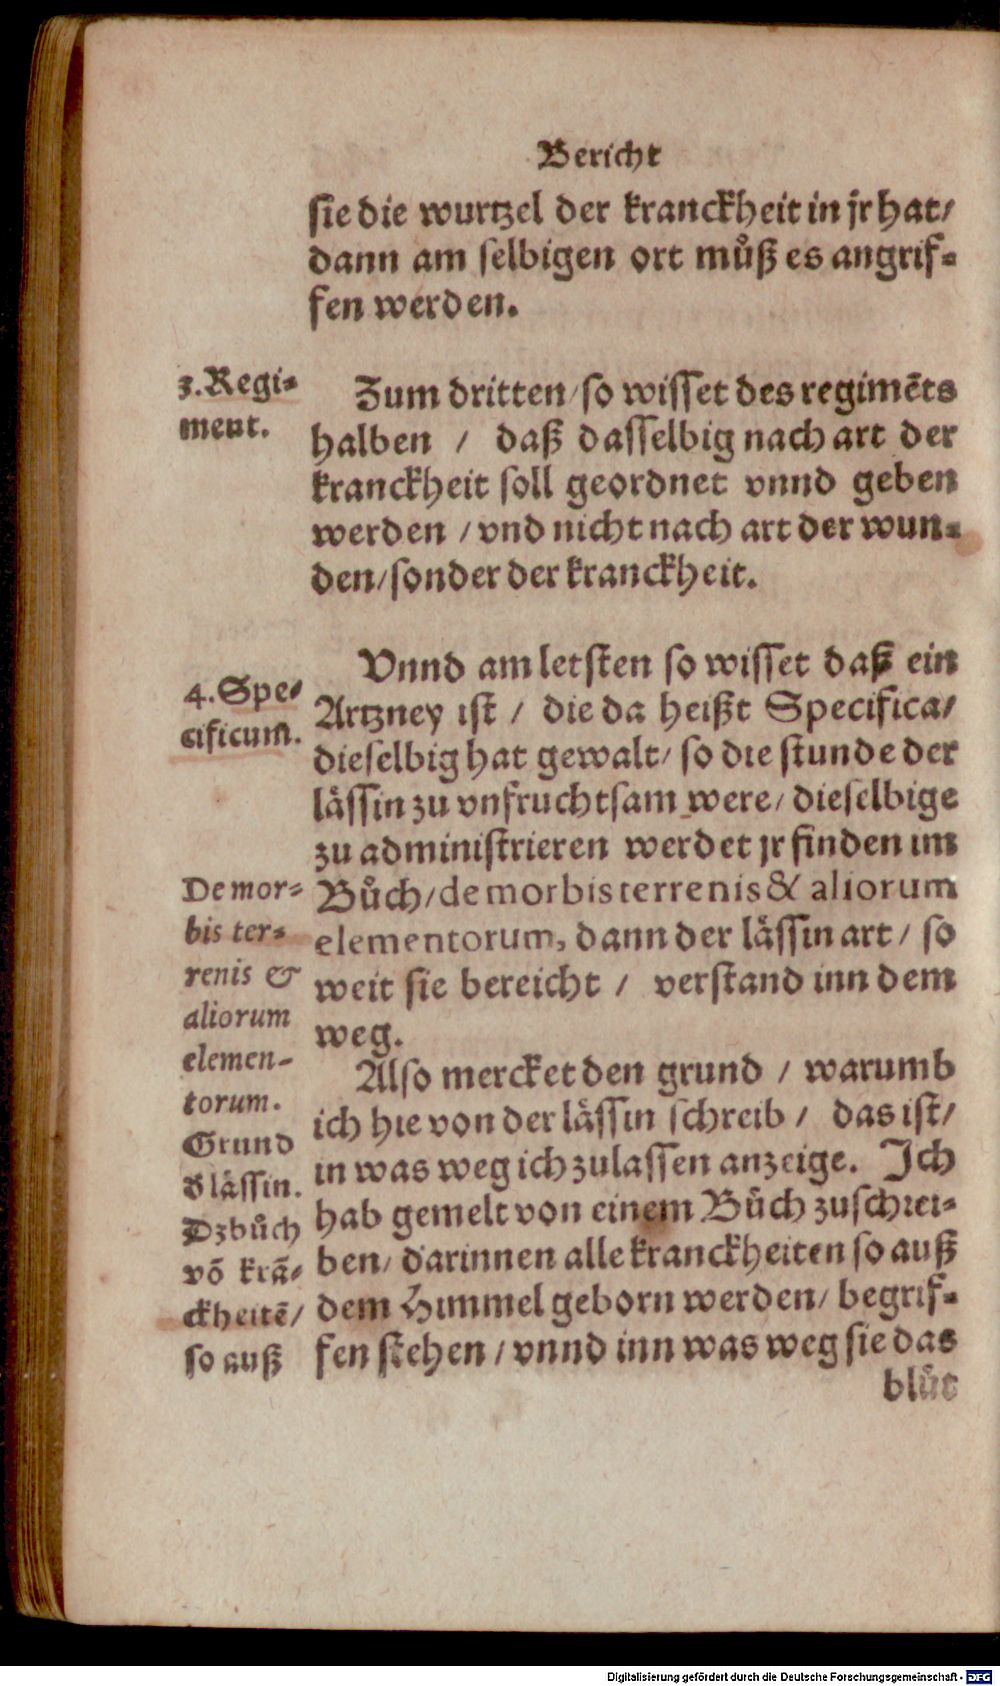 Bericht
sie die wurtzel der kranckheit in jr hat/
dann am selbigen ort muͦß es angrif⸗
fen werden.
3. Regi⸗
ment.
Zum dritten/ so wisset des regimẽts
halben / daß dasselbig nach art der
kranckheit soll geordnet vnnd geben
werden / vnd nicht nach art der wun⸗
den/ sonder der kranckheit.
4. Spe⸗
cificum.
Vnnd am letsten so wisset daß ein
Artzney ist / die da heißt Specifica/
dieselbig hat gewalt/ so die stunde der
lässin zu vnfruchtsam were/ dieselbige
zu administrieren werdet jr finden im
Buͦch/ de morbis terrenis & aliorum
elementorum, dann der lässin art / so
weit sie bereicht / verstand inn dem
weg.
De mor⸗
bis ter⸗
renis &
aliorum
elemen-
torum.
Grund
d lässin.
Dz buͦch
võ krã⸗
ckheitẽ/
so auß
Also mercket den grund / warumb
ich hie von der lässin schreib / das ist/
in was weg ich zulassen anzeige. Ich
hab gemelt von einem Buͦch zuschrei⸗
ben/ darinnen alle kranckheiten so auß
dem Himmel geborn werden/ begrif⸗
fen stehen / vnnd inn was weg sie das
bluͦt
Digitalisierung gefördert durch die Deutsche Forschungsgemeinschaft - DFG